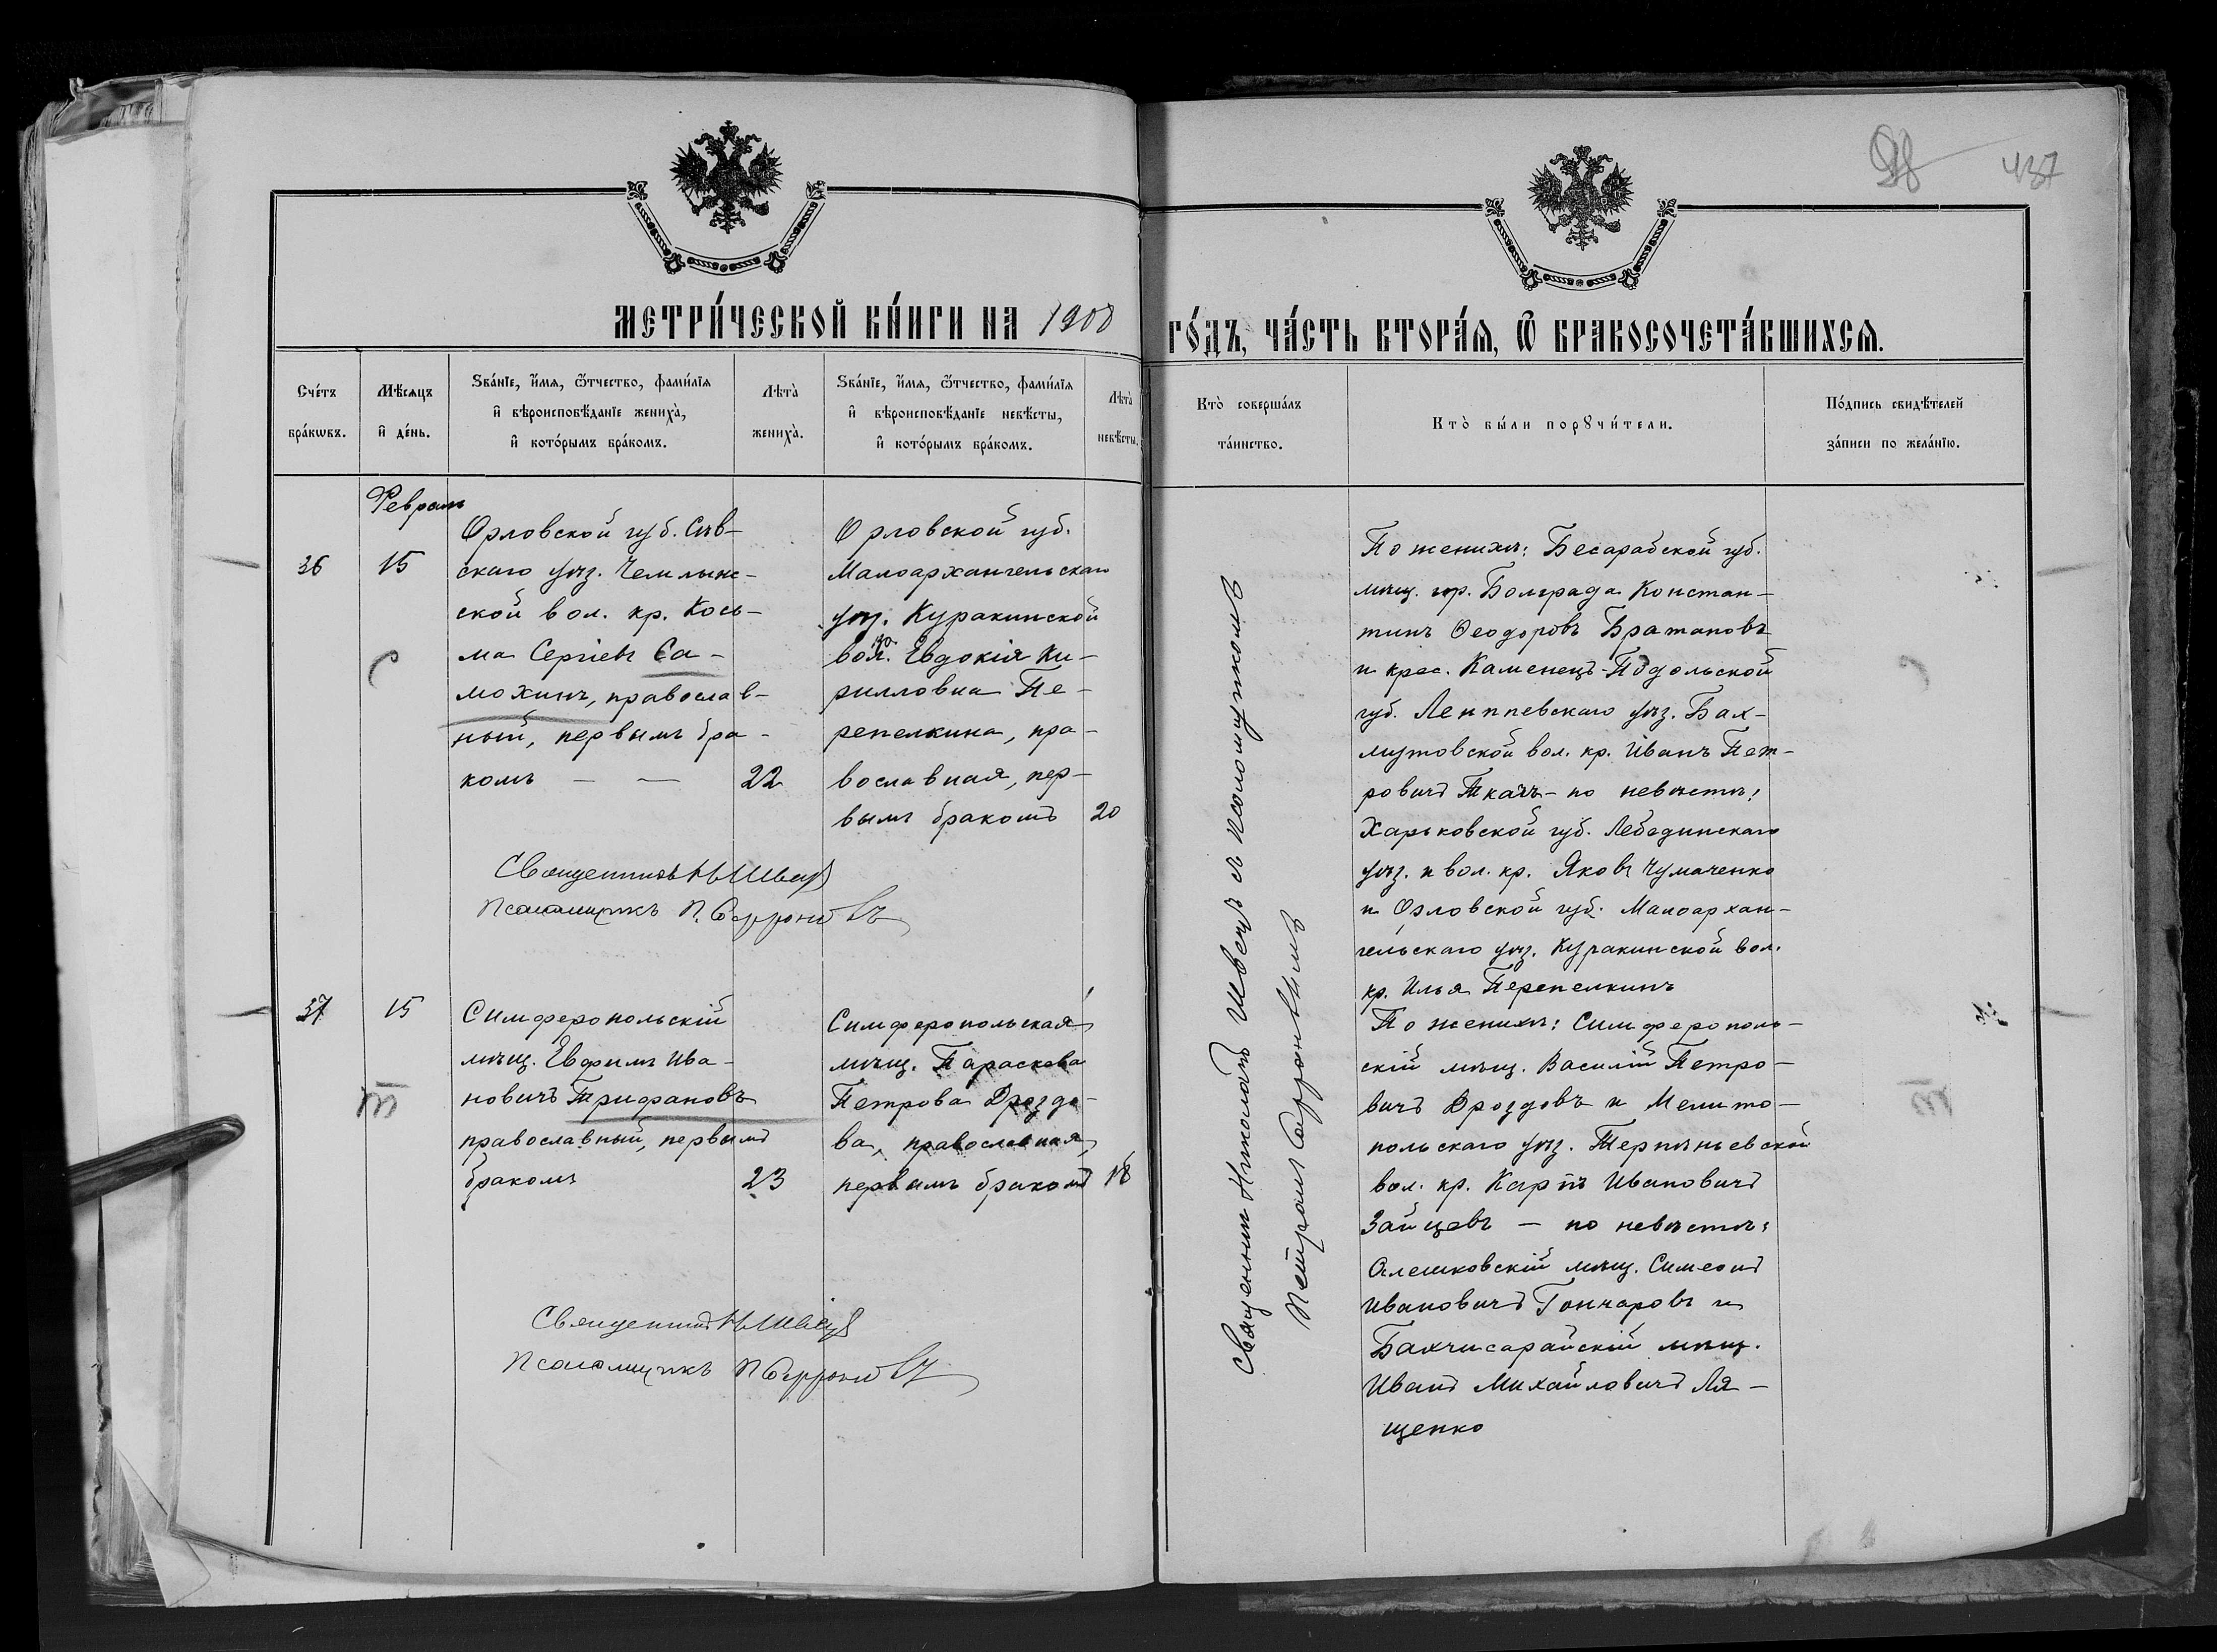 437
МЕТРИ́ЧЕСКОЙ КНИ́ГИ НА 1908
ГО́ДЪ, ЧА́СТЬ ВТОРА́Я, Ѿ БРАКОСОЧЕТА́ВШИХСЯ.
Сче́тъ
бра́кѡвъ.
Мѣ́сяцъ
и҆ де́нь.
Ѕва́нїе, и҆́мя, ѻ҆́тчество, фами́лїя
и҆ вѣроисповѣ́данїе жениха̀,
и҆ кото́рымъ бра́комъ.
Лѣта̀
жениха̀.
Ѕва́нїе, и҆́мя, ѻ҆́тчество, фами́лїя
и҆ вѣроисповѣ́данїе невѣ́сты,
и҆ кото́рымъ бра́комъ.
Лѣта̀
невѣ́сты.
Кто̀ соверша́лъ
та́инство.
Кто̀ бы́ли порꙋчи́тели.
По́дпись свидѣ́телей
за́писи по жела́нїю.
Февраль
36
15
Орловской губ. Сѣв-
скаго уѣз. Чемлыж-
ской вол. кр. Кось-
ма Сергіевъ Са-
мохинъ, православ-
ный, первымъ бра-
комъ — — 22
Орловской губ.
Малоархангельскаго
уѣз. Куракинской
вол. Евдокія Ки-
рилловна Пе-
репелкина, пра-
вославная, пер-
вымъ бракомъ 20
Священникъ Н Швецъ
Псаломщикъ П. Сафроновъ
Священник Николай Швецъ с псаломщикомъ
Петромъ Сафроновымъ
По женихѣ: Бесарабской губ.
мѣщ. гор. Болграда Констан-
тинъ Ѳеодоровъ Братановъ
и крес. Каменецъ-Подольской
губ.
уѣз. Бах-
мутовской вол. кр. Иванъ Пет-
ровичъ Ткачъ - по невѣстѣ:
Харьковской губ. Лебединскаго
уѣз. и вол. кр. Яковъ Чумаченко
и Орловской губ. Малоархан-
гельскаго уѣз. Куракинской вол.
кр. Илья Перепелкинъ
37
15
Симферопольскій
мѣщ. Евфимъ Ива-
новичъ Трифановъ
православный, первымъ
бракомъ 23
Симферопольская
мѣщ. Параскева
Петрова Дроздо-
ва, православная,
первымъ бракомъ 18
Священникъ Н Швецъ
Псаломщикъ П Сафроновъ
По женихѣ: Симферополь-
скій мѣщ. Василій Петро-
вичъ Дроздовъ и Мелито-
польскаго уѣз. Терпѣньевской
вол. кр. Карпъ Ивановичъ
Зайцевъ — по невѣстѣ:
Алешковскій мѣщ. Симеонъ
Ивановичъ Гончаровъ и
Бахчисарайскій мѣщ.
Иванъ Михайловичъ Ля-
щенко